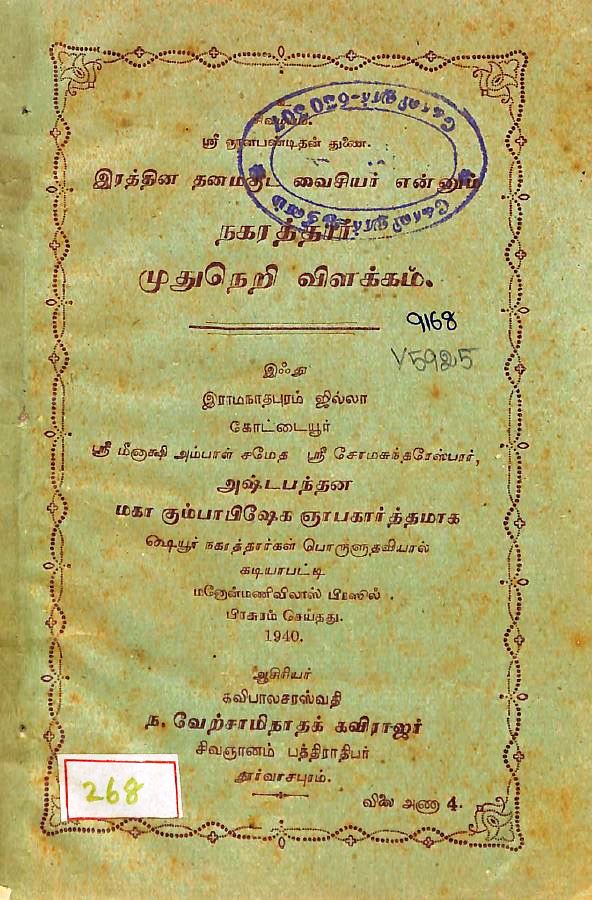 சிவமயம்.
ஸ்ரீ ஞானபண்டிதன் துணை.
இரத்தின தனமகுட வைசியர் என்னும்
நகரத்தார்
முதுநெறி விளக்கம்.
9168
V5925
இஃது
இராமநாதபுரம் ஜில்லா
கோட்டையூர்
ஸ்ரீ மீனாக்ஷி அம்பாள் சமேத ஸ்ரீ சோமசுந்தரேஸ்பரர்,
அஷ்டபந்தன
மகா கும்பாபிஷேக ஞாபகார்த்தமாக
ஷையூர் நகரத்தார்கள் பொருளுதவியால்
கடியாபட்டி
மனோன்மணிவிலாஸ் பிரஸில்.
பிரசுரம் செய்தது.
1940.
ஆசிரியர்
கவிபாலசரஸ்வதி
ந. வேற்சாமிநாதக் கவிராஜர்
சிவஞானம் பத்திராதிபர்
தூர்வாசபுரம்.
268
விலை அணா 4.